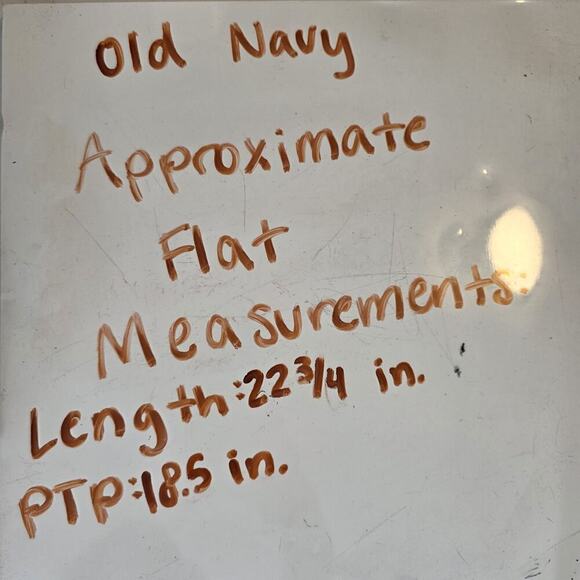 Old Navy
Approximate
Flat
Measurements:
Length: 22 3/4 in.
PTP: 18.5 in.